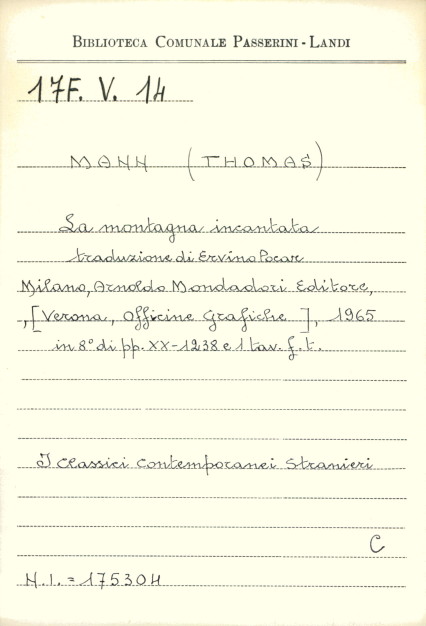 BIBLIOTECA COMUNALE PASSERINI - LANDI
17F. V. 14
MANN (THOMAS)
La montagna incantata
traduzione di Ervino Pocar
Milano, Arnoldo Mondadori Editore,
,[Verona, Officine Grafiche ], 1965
in 8° di pp. XX-1238 e 1 tav. f.t.
I classici contemporanei stranieri
C
N.I. = 175304